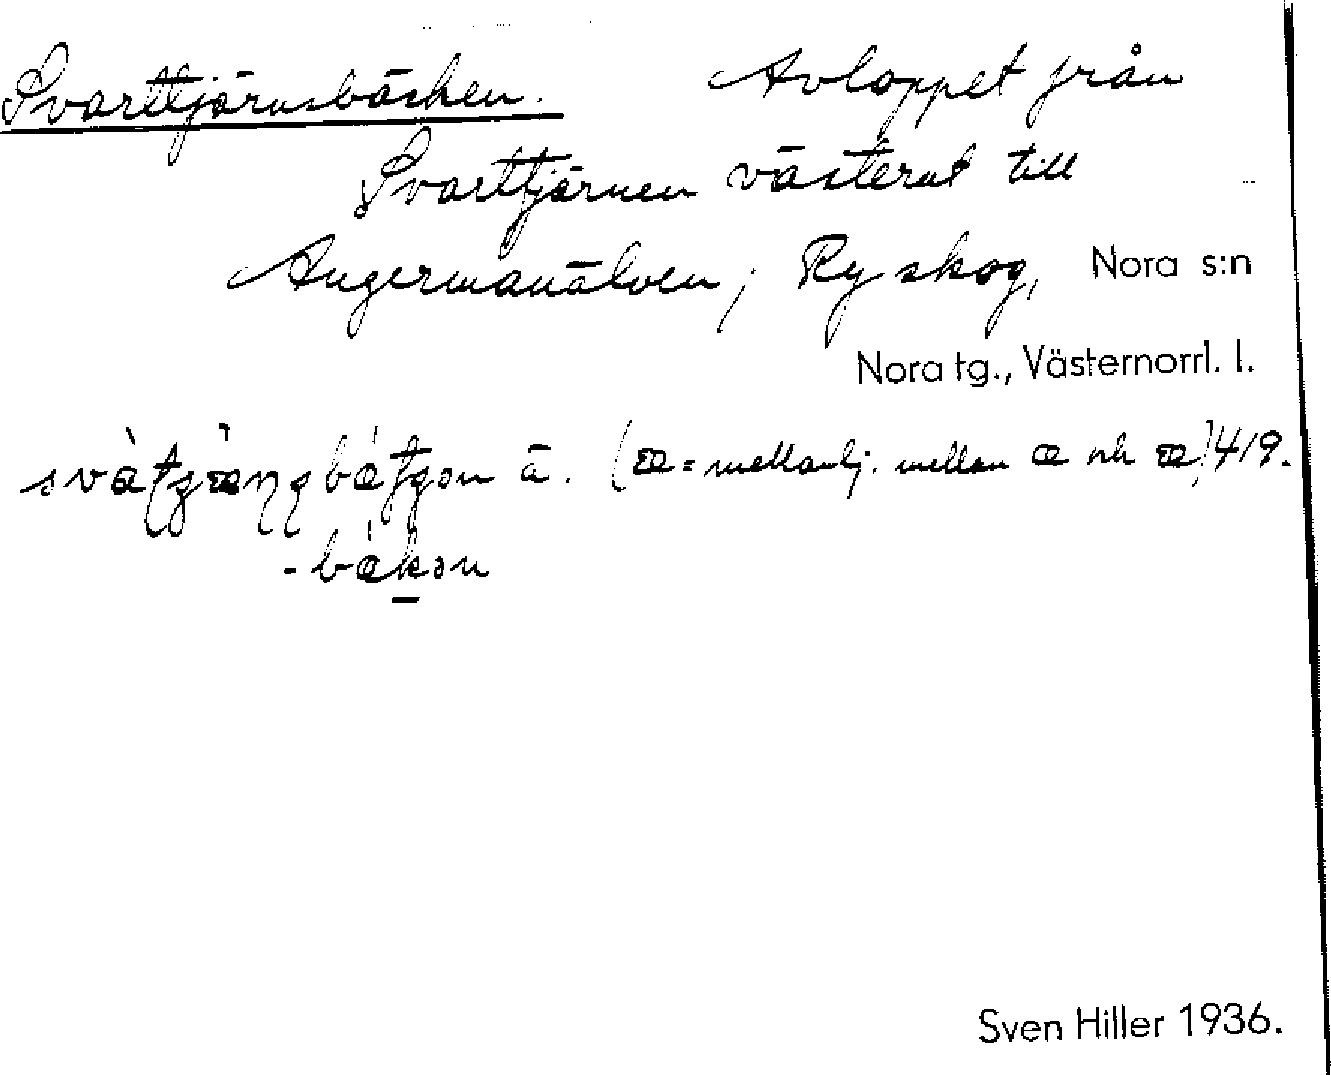 Svarttjärnsbäcken. Avloppet från
Svarttjärnen västerut till
Ångermanälven; Ry skog, Nora s:n
Nora tg., Västernorrl. l.
ä. ( = mellanlj. mellan æ och ) 419.
Sven Hiller 1936.